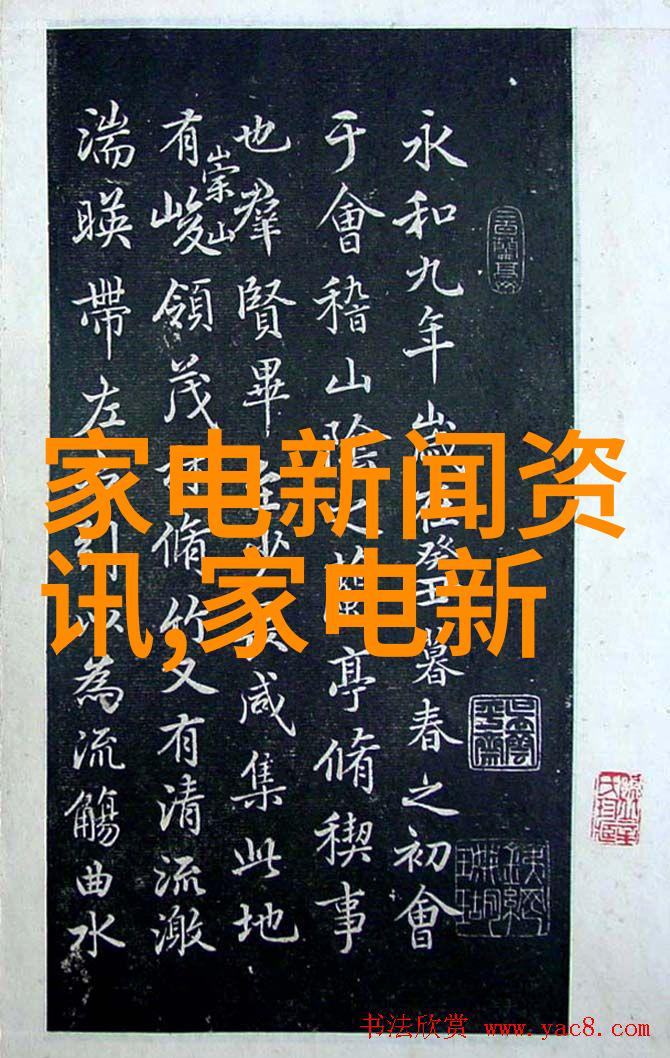 永和九年歲在癸丑暮春之初會
于會稽山陰之蘭亭脩稧事
也羣賢畢至少長咸集此地
有崇山峻領茂林脩竹又有清流激
湍暎帶左右引以為流觴曲水
家电新闻资
讯,家电新
书法欣赏 www.yac8.com